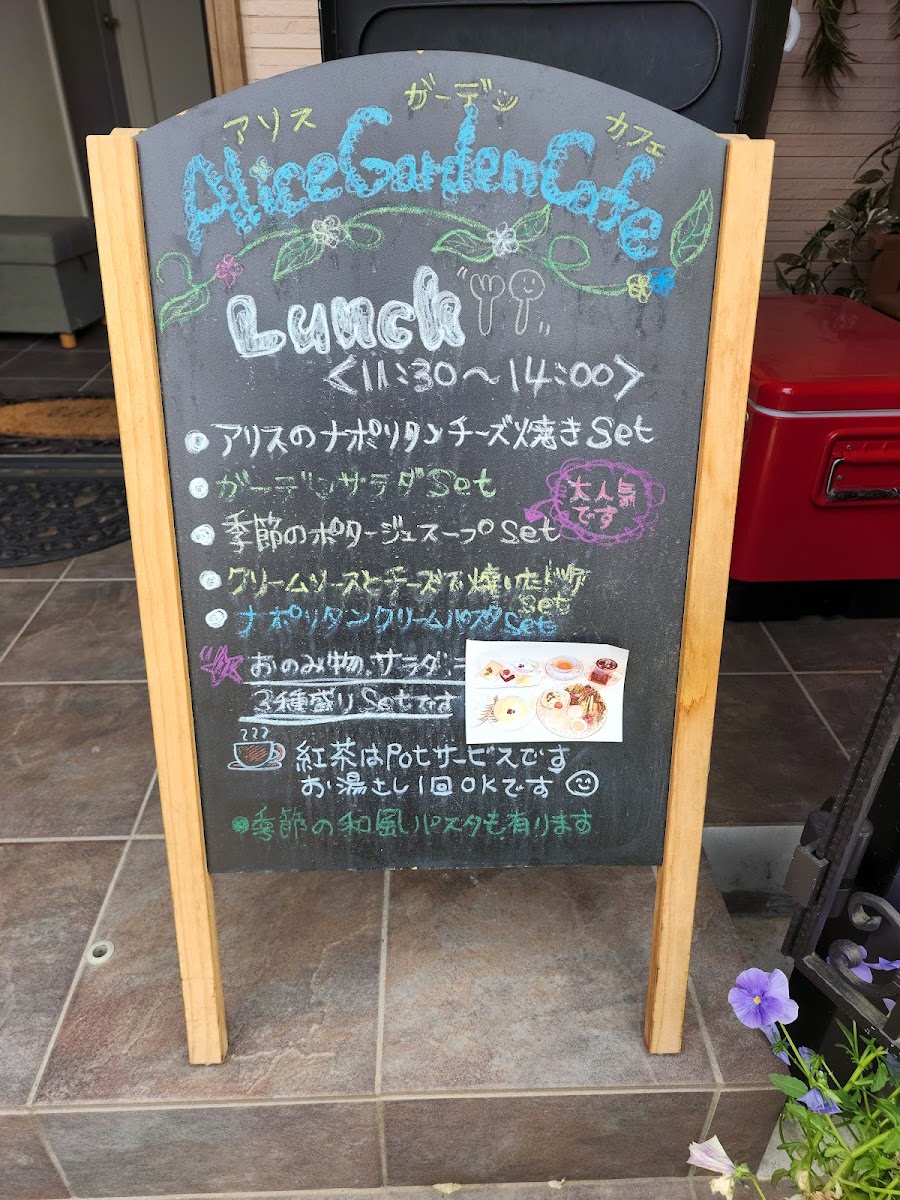 アリス ガーデン カフェ
AliceGardenCafe
Lunch
<11:30～14:00>
アリスのナポリタンチーズ焼きSet
ガーデンサラダSet
大人気
です
季節のポタージュスープSet
クリームソースとチーズで焼いたドリア
Set
ナポリタンクリームパスタSet
おのみ物、サラダ
3種盛りSetです
紅茶はPotサービスです
お湯さし1回OKです
季節の和風パスタも有ります